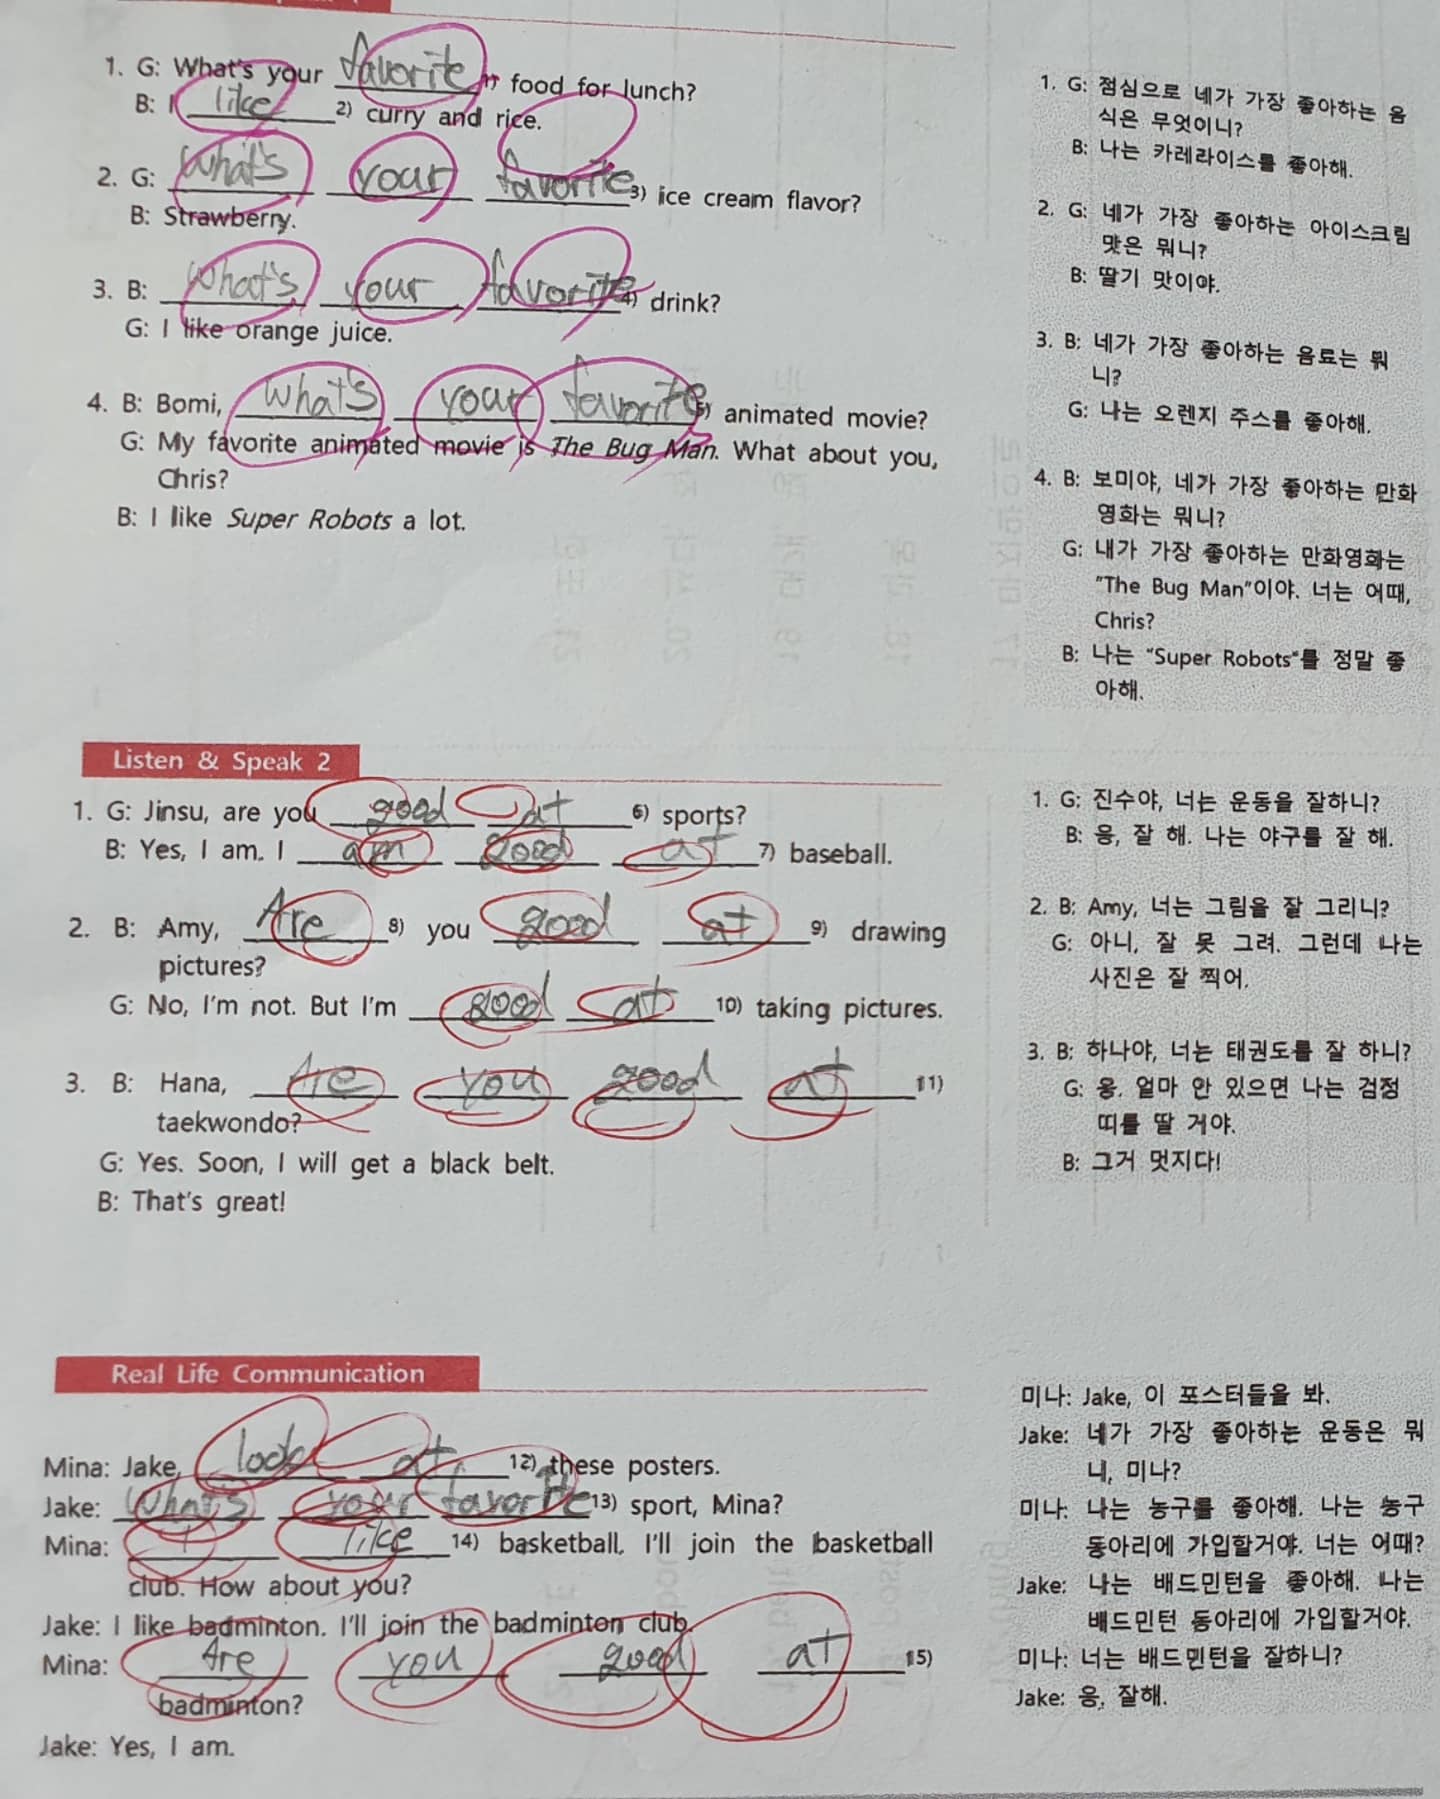 1. G: What's your favorite 1) food for lunch?
B: I like 2) curry and rice.
2. G: What's your favorite 3) ice cream flavor?
B: Strawberry.
3. B: What's your favorite 4) drink?
G: I like orange juice.
4. B: Bomi, what's your favorite 5) animated movie?
G: My favorite animated movie is The Bug Man. What about you,
Chris?
B: I like Super Robots a lot.
1. G: 점심으로 네가 가장 좋아하는 음
식은 무엇이니?
B: 나는 카레라이스를 좋아해.
2. G: 네가 가장 좋아하는 아이스크림
맛은 뭐니?
B: 딸기 맛이야.
3. B: 네가 가장 좋아하는 음료는 뭐
니?
G: 나는 오렌지 주스를 좋아해.
4. B: 보미야, 네가 가장 좋아하는 만화
영화는 뭐니?
G: 내가 가장 좋아하는 만화영화는
"The Bug Man"이야. 너는 어때,
Chris?
B: 나는 "Super Robots"를 정말 좋
아해.
Listen & Speak 2
1. G: Jinsu, are you good at 6) sports?
B: Yes, I am. I am good at 7) baseball.
2. B: Amy, Are 8) you good at 9) drawing
pictures?
G: No, I'm not. But I'm good at 10) taking pictures.
3. B: Hana, Are you good at 11)
taekwondo?
G: Yes. Soon, I will get a black belt.
B: That's great!
1. G: 진수야, 너는 운동을 잘하니?
B: 응, 잘 해. 나는 야구를 잘 해.
2. B: Amy, 너는 그림을 잘 그리니?
G: 아니, 잘 못 그려. 그런데 나는
사진은 잘 찍어.
3. B: 하나야, 너는 태권도를 잘 하니?
G: 응. 얼마 안 있으면 나는 검정
띠를 딸 거야.
B: 그거 멋지다!
Real Life Communication
Mina: Jake, look at 12) these posters.
Jake: What's your favorite 13) sport, Mina?
Mina: I like 14) basketball. I'll join the basketball
club. How about you?
Jake: I like badminton. I'll join the badminton club.
Mina: Are you good at 15)
badminton?
Jake: Yes, I am.
미나: Jake, 이 포스터들을 봐.
Jake: 네가 가장 좋아하는 운동은 뭐
니, 미나?
미나: 나는 농구를 좋아해. 나는 농구
동아리에 가입할거야. 너는 어때?
Jake: 나는 배드민턴을 좋아해. 나는
배드민턴 동아리에 가입할거야.
미나: 너는 배드민턴을 잘하니?
Jake: 응, 잘해.